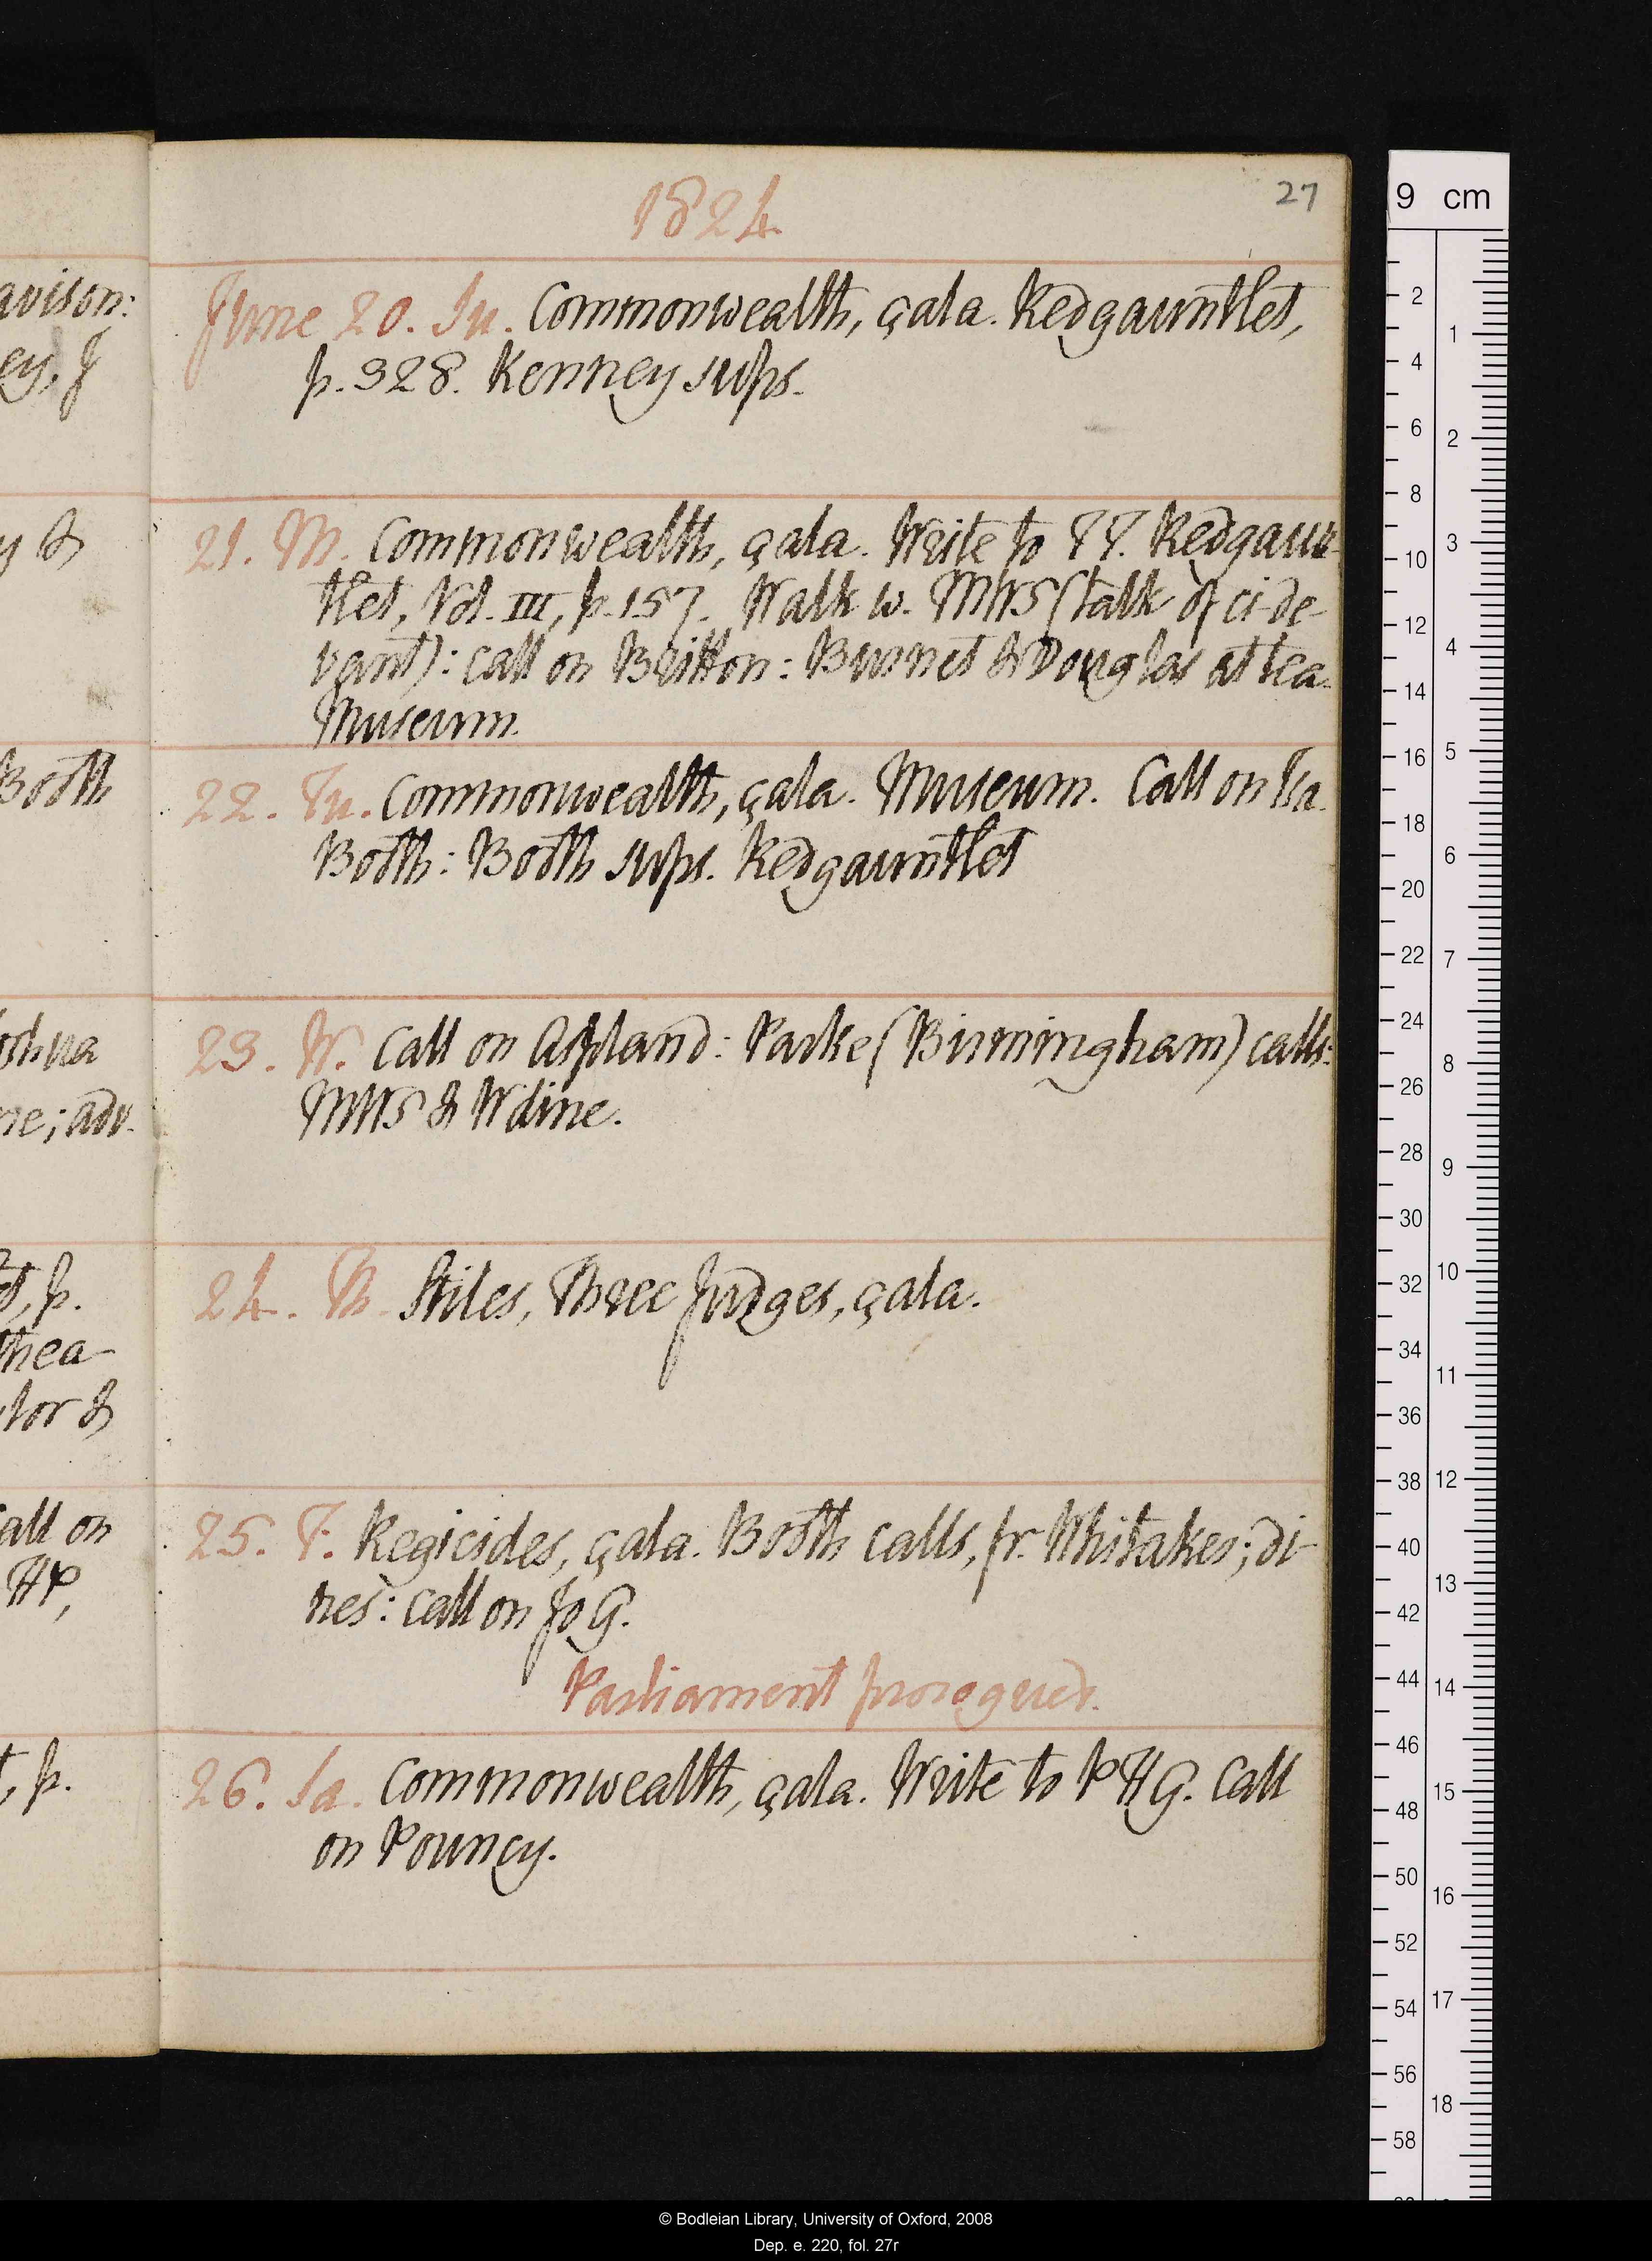 1824
27
June 20. Su. Commonwealth, çala. Redgauntlet,
p. 328. Kenney sups.
21. M. Commonwealth, çala. Write to TT. Redgaun-
tlet, Vol. III, p. 157. Walk w. MWS (talk of ci-de-
vant): call on Britton: Burnet & Douglas at tea.
Museum.
22. Tu. Commonwealth, çala. Museum. Call on
Booth: Booth sups. Redgauntlet
23. W. Call on Aspland: Parke (Birmingham) calls:
MWS & W dine.
24. Th. Stiles, Three Judges, çala.
25. F. Regicides, çala. Booth calls, fr. Whitaker; di-
nes: call on Jo G.
Parliament prorogued.
26. Sa. Commonwealth, çala. Write to PHG. Call
on Pouncy.
avison:
ey, J
y &
Booth
oshua
ne; adv.
et, p.
thea-
tor &
all on
HP,
t, p.
9 cm
2
4
6
8
10
12
14
16
18
20
22
24
26
28
30
32
34
36
38
40
42
44
46
48
50
52
54
56
58
1
2
3
4
5
6
7
8
9
10
11
12
13
14
15
16
17
18
© Bodleian Library, University of Oxford, 2008
Dep. e. 220, fol. 27r